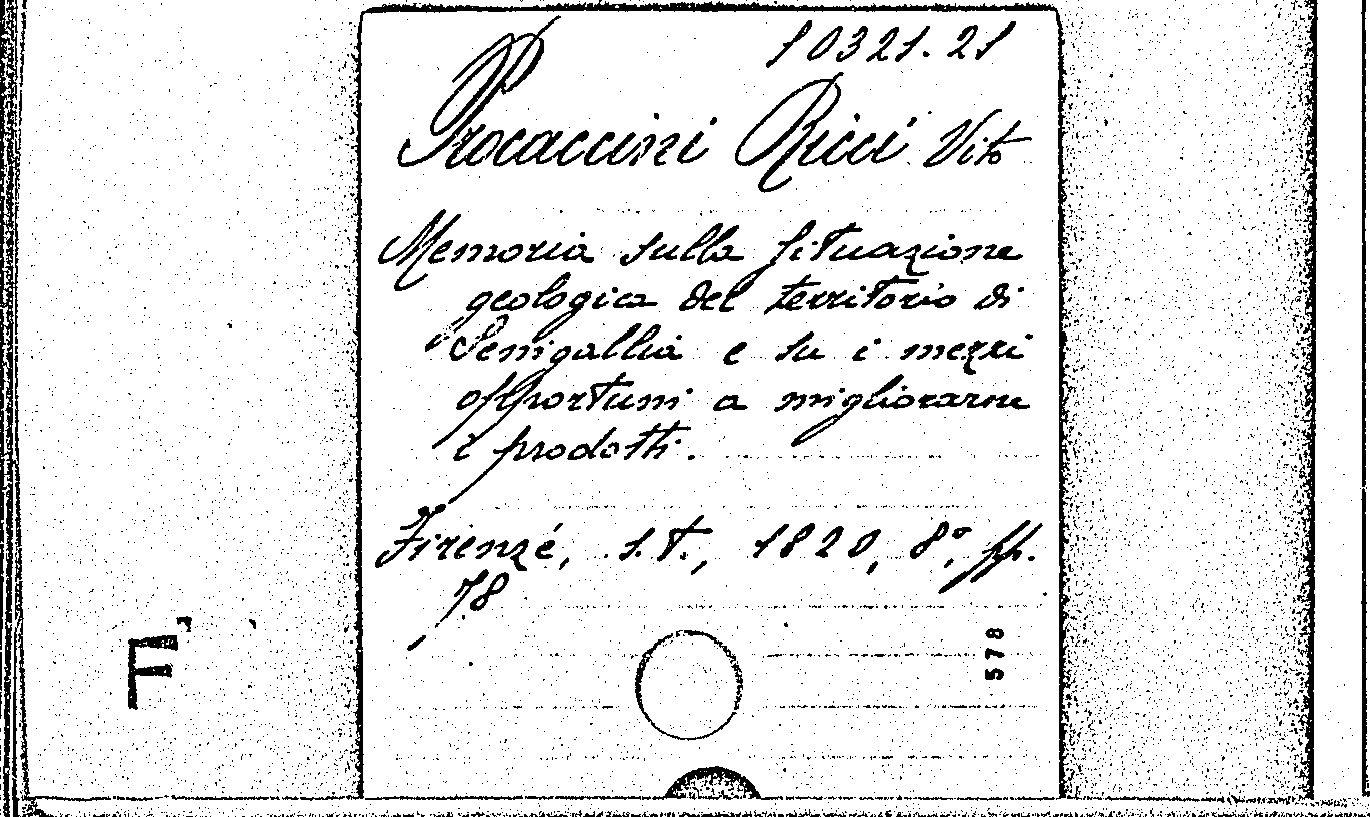 10321.21
Procaccini Ricci Vito
Memoria sulla situazione
geologica del territorio di
Senigallia e su i mezzi
opportuni a migliorarne
i prodotti.
Firenze, s.t., 1820, 8°, pp.
78
578
F